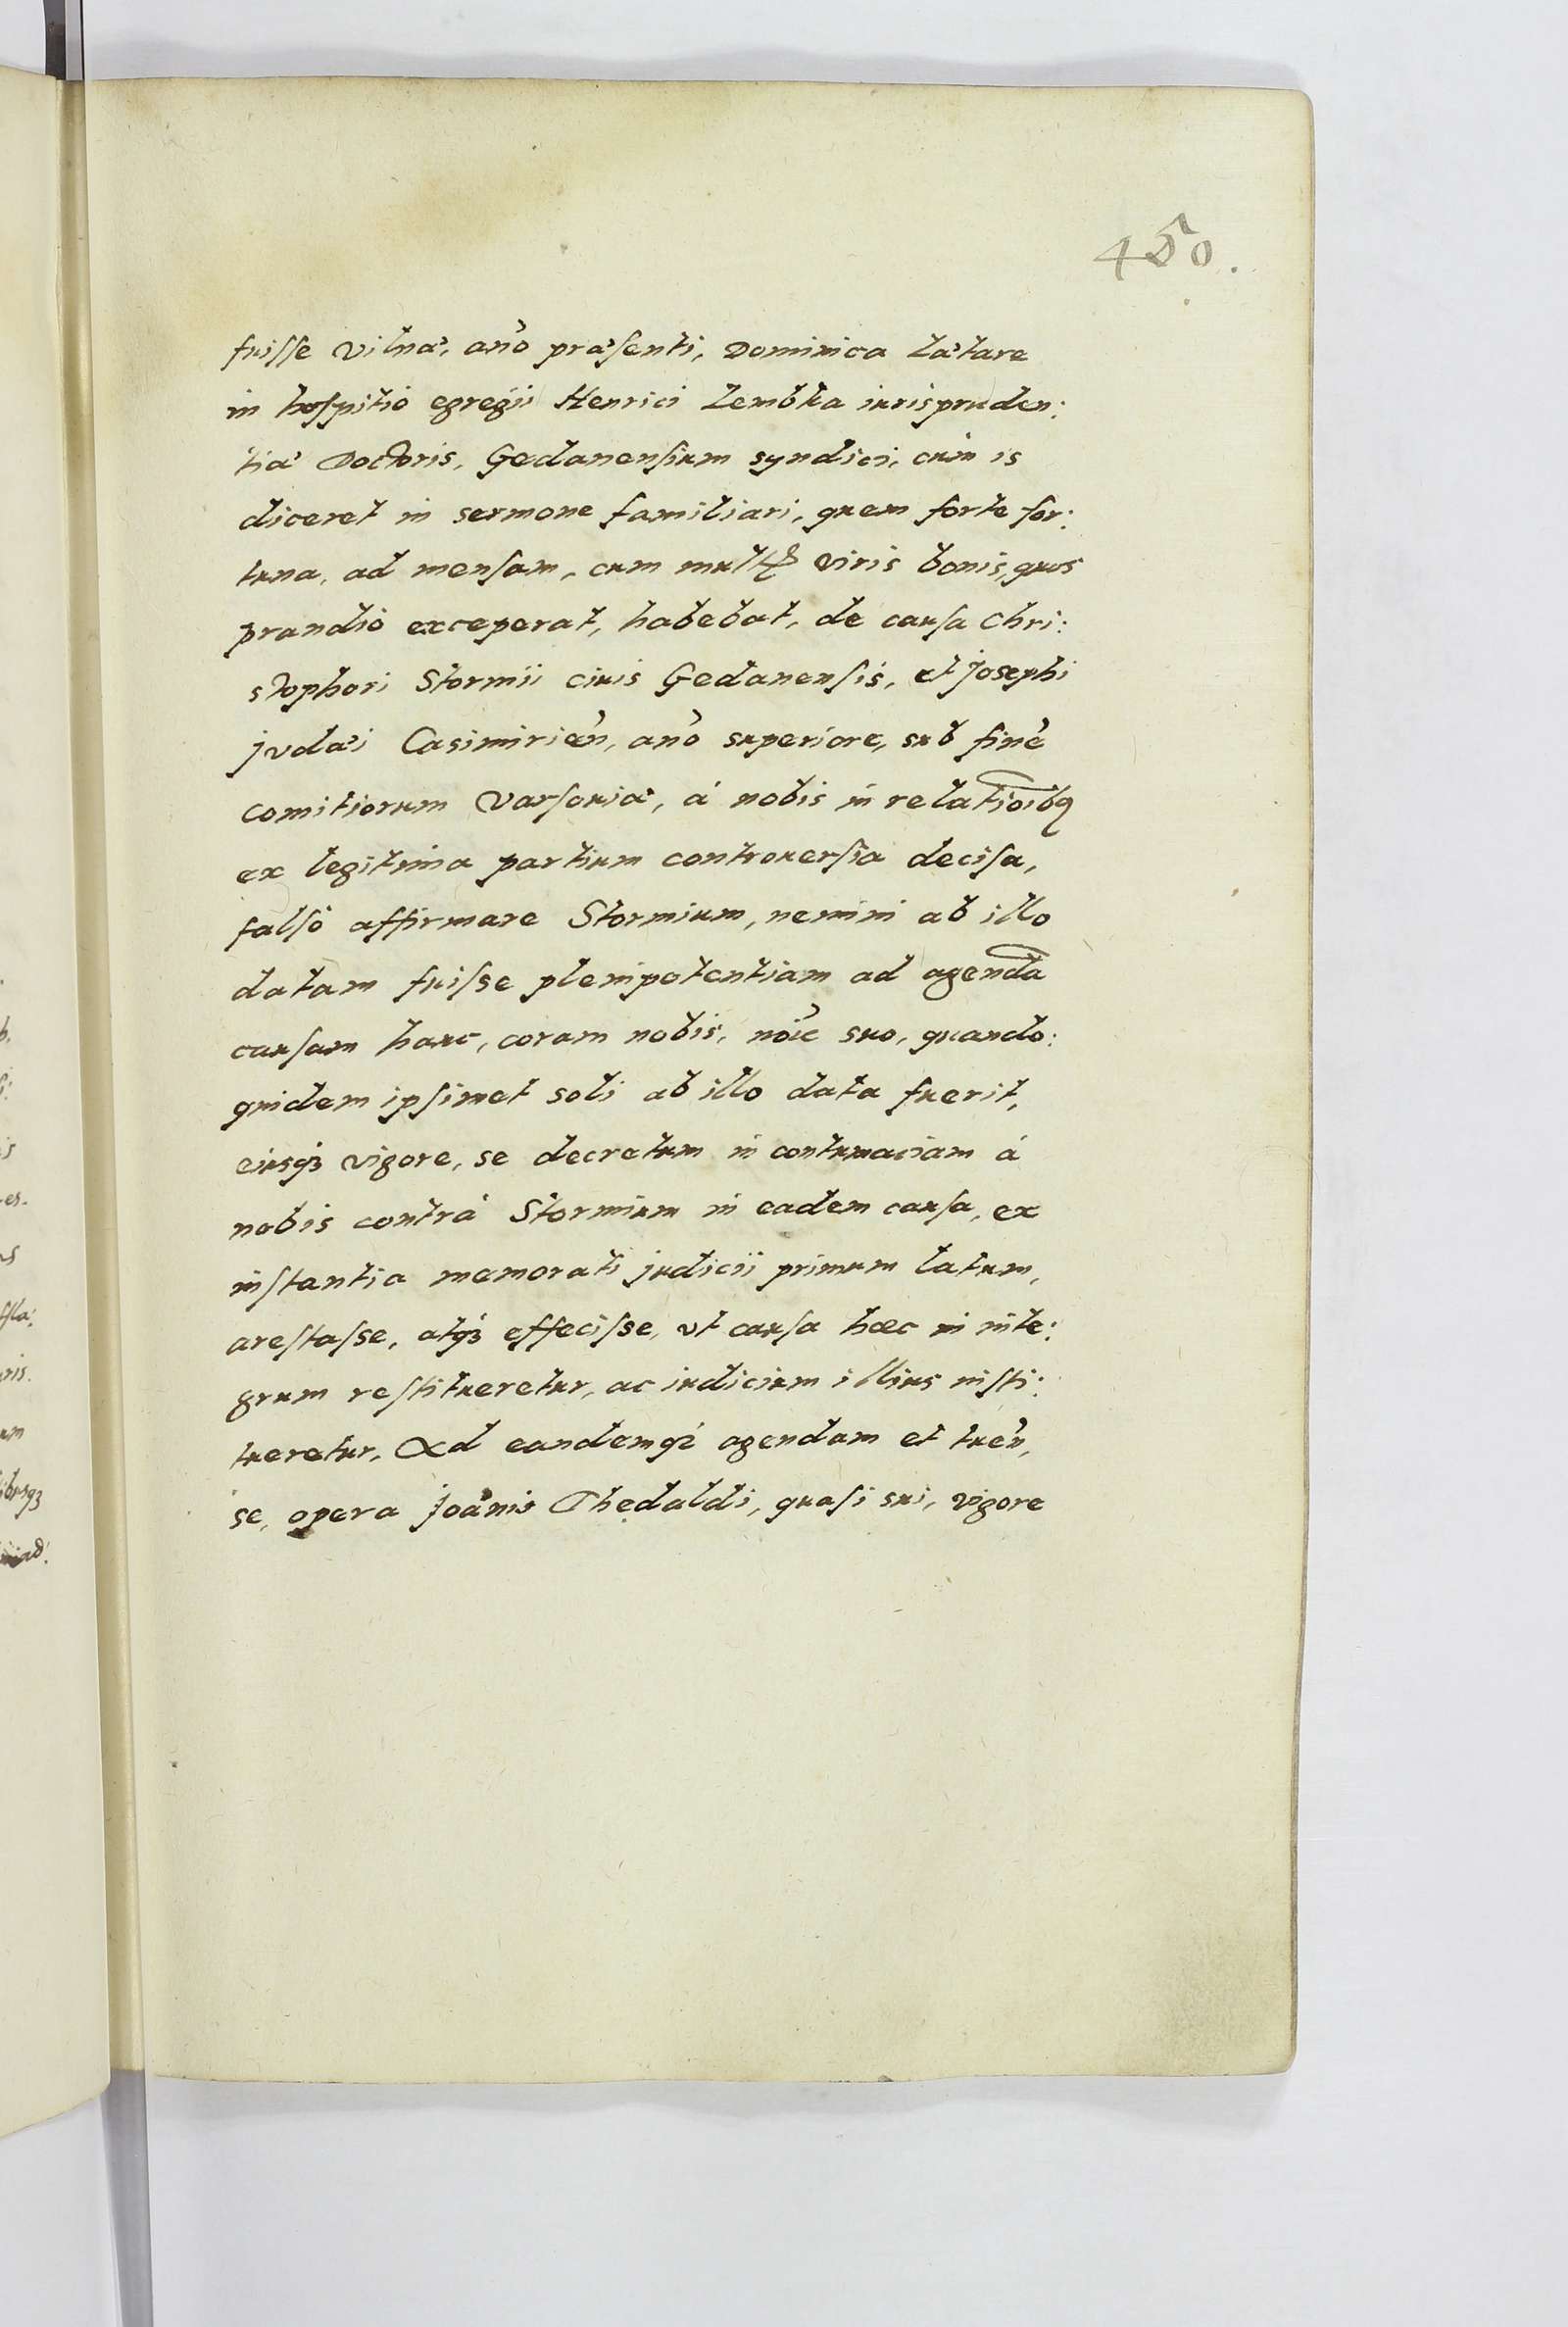 450.
fuisse Vilnæ, año præsenti, Dominica Lætare
in hospitio egregii Henrici Lembka iurispruden:
tiæ Doctoris, Gedanensium syndici, cum is
diceret in sermone familiari, quem forte for:
tuna, ad mensam, cum multis viris bonis, quos
prandio exceperat, habebat, de causa Chri:
stophori Stormii ciuis Gedanensis, et Josephi
judæi Casimirień, año superiore, sub finē
comitiorum Varsouiæ, á nobis in relatioibq
ex legitima partium controuersia decisa,
falsò affirmare Stormium, nemini ab illo
datam fuisse plenipotentiam ad agendā
causam hanc, coram nobis, noīe suo, quando:
quidem ipsimet soli ab illo data fuerit,
eiusqȝ vigore, se decretum in contumaciam á
nobis contrá Stormium in eadem causa, ex
instantia memorati judicii primum latum,
arestasse, atqȝ effecisse, vt causa hæc in inte:
grum restitueretur, ac iudicium illius insti:
tueretur. Ad eandemqȝ agendam et tueñ,
se, opera Joānis Thedaldi, quasi sui, vigore